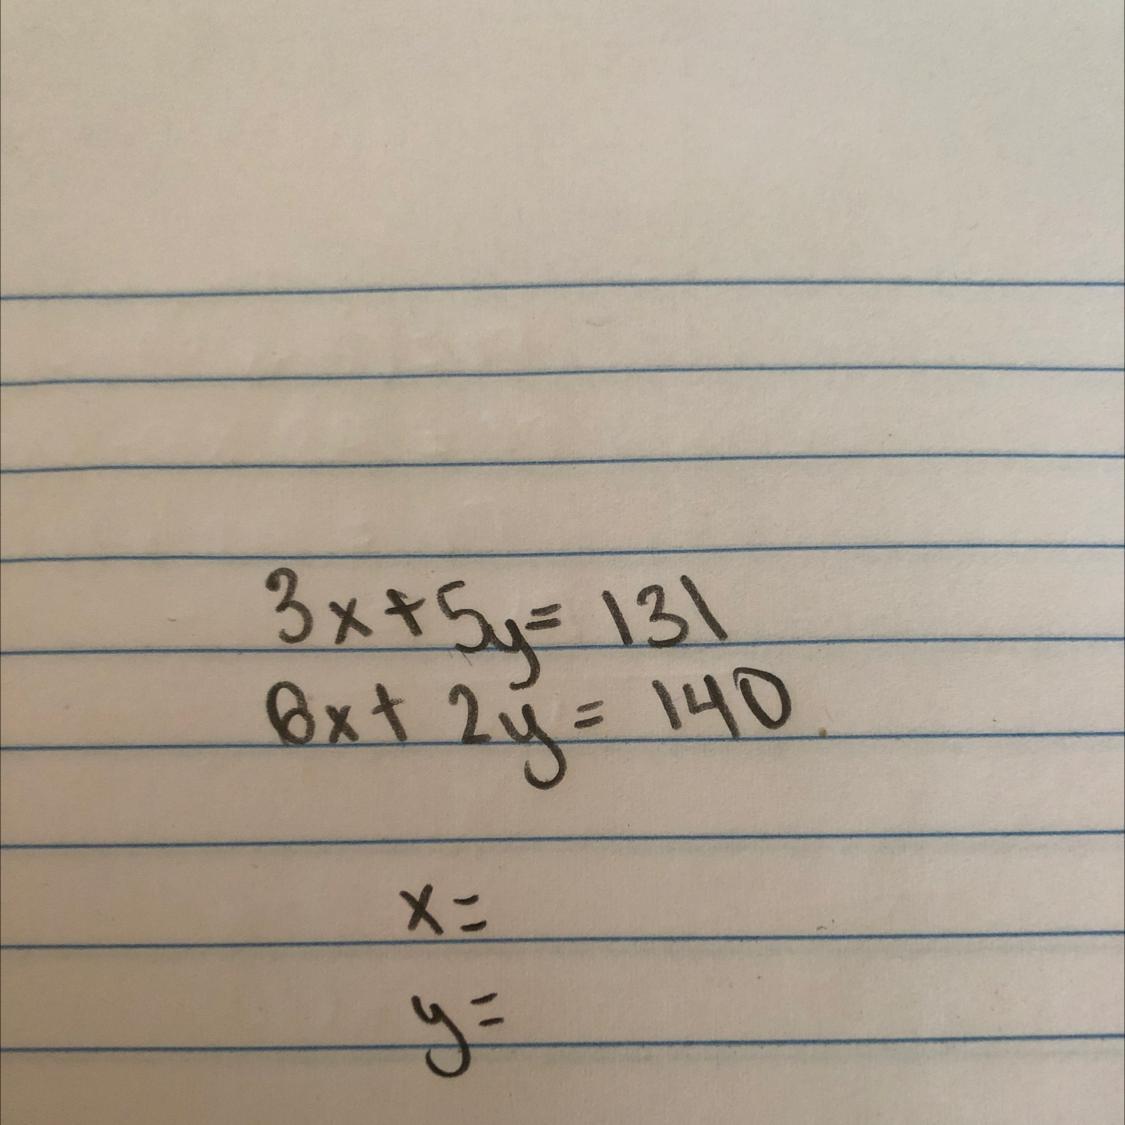 3x+5y= 131
6x+ 2y= 140
x=
y=